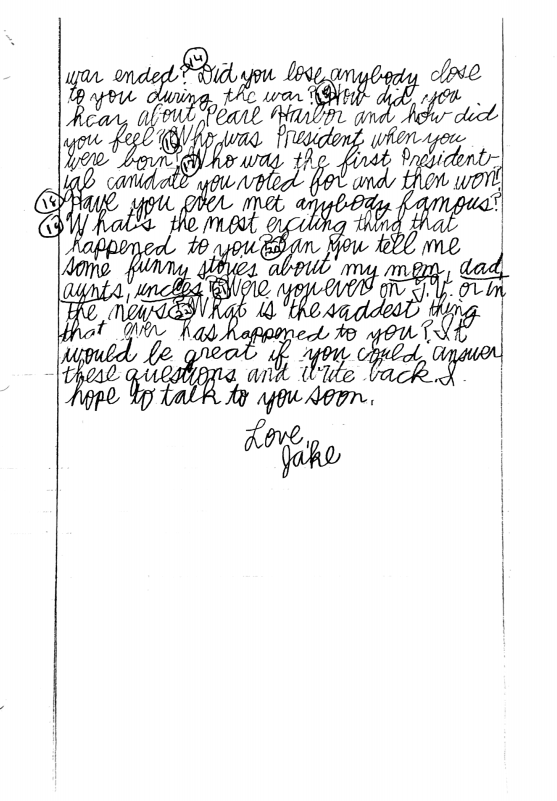 war ended? (14) Did you lose anybody close
to you during the war? (15) How did you
hear about Pearl Harbor and how did
you feel? (16) Who was President when you
were born? (17) Who was the first President-
ial canidate you voted for and then won?
(18) Have you ever met anybody famous?
(19) What's the most exciting thing that
happened to you? (20) Can you tell me
some funny stories about my mom, dad,
aunts, uncles? (21) Were you ever on T.V. or in
the news? (22) What is the saddest thing
that ever has happened to you? It
would be great if you could answer
these questions and write back. I
hope to talk to you soon.
Love,
Jake